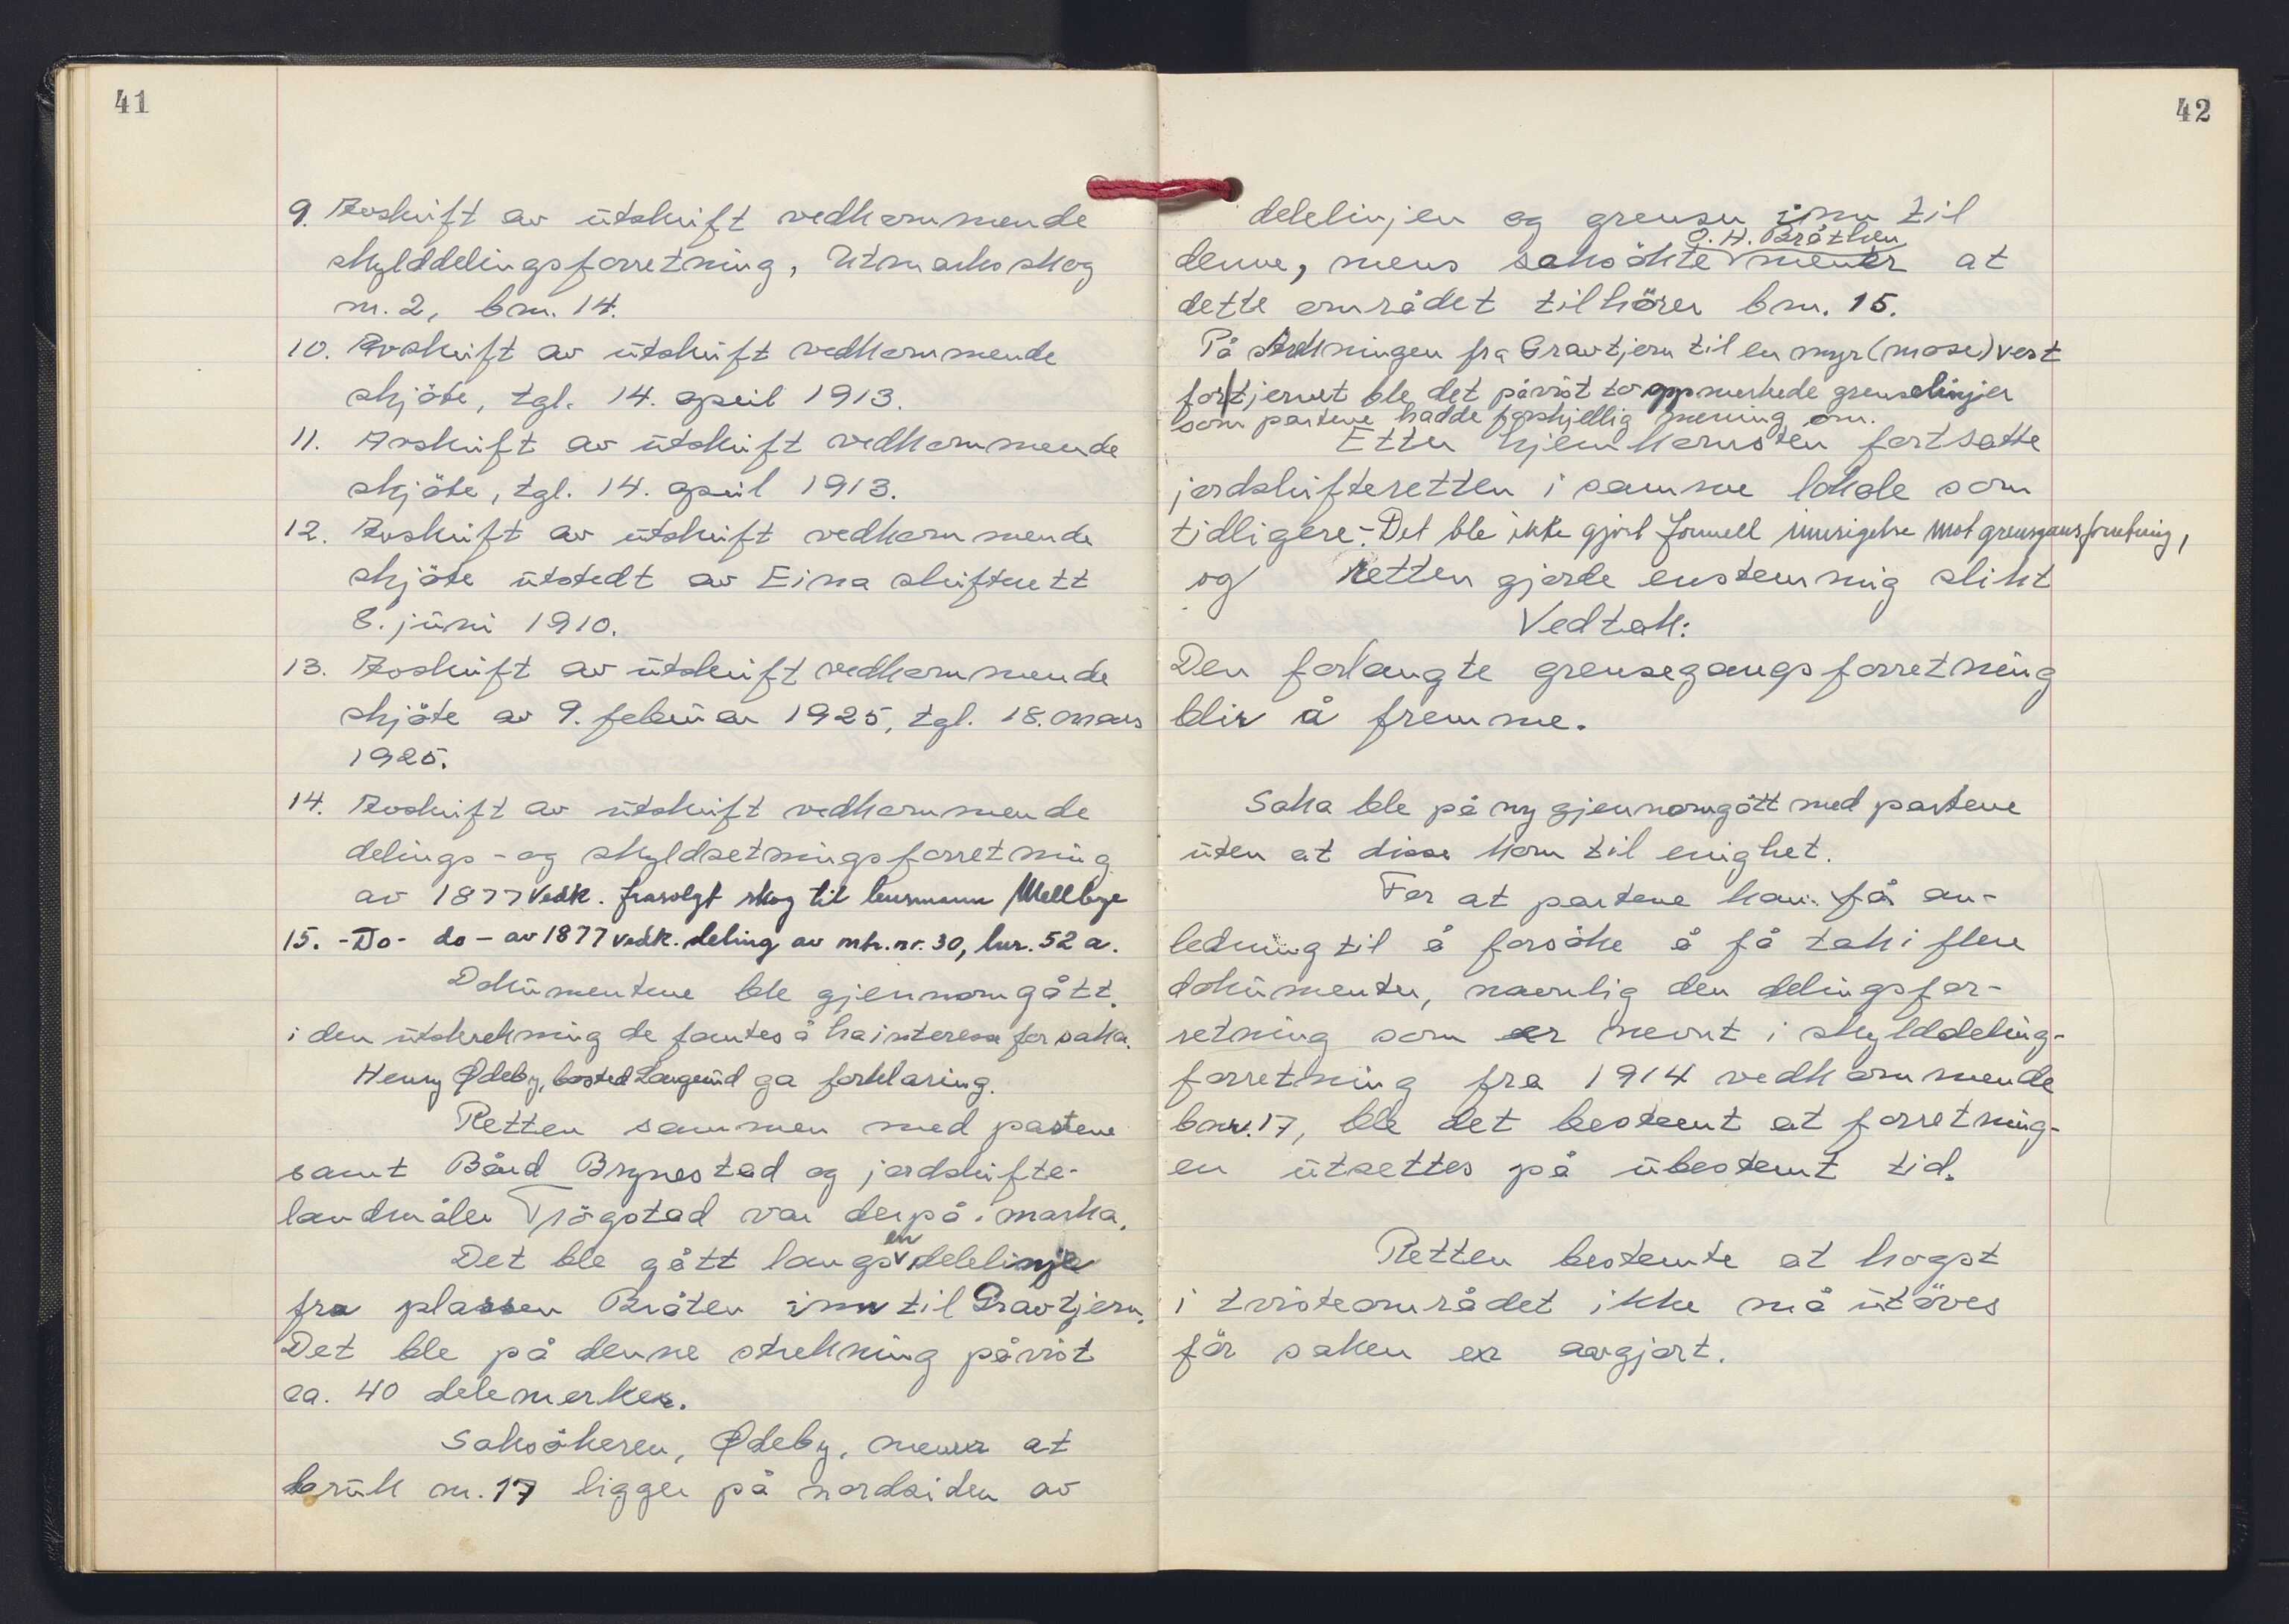 41
9. Avskrift av utskrift vedkommende
skylddelingsforretning, Utmarksskog
nr. 2, bnr. 14.
10. Avskrift av utskrift vedkommende
skjöte, tgl. 14. april 1913.
11. Avskrift av utskrift vedkommende
skjöte, tgl. 14. april 1913.
12. Avskrift av utskrift vedkommende
skjöte utstedt av Eina skifterett
8. juni 1910.
13. Avskrift av utskrift vedkommende
skjöte av 9. februar 1925, tgl. 18. mars
1925.
14. Avskrift av utskrift vedkommende
delings- og skyldsetningsforretning
av 1877 vedk. frasolgt skog til lensmann Mellbye
15. -Do- do - av 1877 vedk. deling av mtr.nr. 30, lnr. 52 a.
Dokumentene ble gjennomgått
i den utstrekning de fantes å ha interesse for saka.
Henry Ødeby, bosted Haugerud ga forklaring.
Retten sammen med partene
samt Bård Brynestad og jordskifte-
landmåler Trögstad var derpå i marka.
Det ble gått langs en delelinje
fra plassen Bråten inn til Gravtjern.
Det ble på denne strekning påvist
ca. 40 delemerker.
Saksökeren, Ødeby, mener at
bruk nr. 17 ligger på nordsiden av
42
delelinjen og grenser inn til
O. H. Bråthen
denne, mens saksökte mener at
dette området tilhörer bnr. 15.
På strekningen fra Gravtjern til en myr (mose) vest
for tjernet ble det påvist to oppmerkede grenselinjer
som partene hadde forskjellig mening om.
Etter hjemkomsten fortsatte
jordskifteretten i samme lokale som
tidligere. - Det ble ikke gjort formell innsigelse mot grensegangsforretning,
og retten gjorde enstemmig slikt
Vedtak:
Den forlangte grensegangsforretning
blir å fremme.
Saka ble på ny gjennomgått med partene
uten at disse kom til enighet.
For at partene kan få an-
ledning til å forsöke å få tak i flere
dokumenter, naemlig den delingsfor-
retning som er nevnt i skylddeling-
forretning fra 1914 vedkommende
bnr. 17, ble det bestemt at forretning-
en utsettes på ubestemt tid.
Retten bestemte at hogst
i tvisteområdet ikke må utöves
för saken er avgjort.